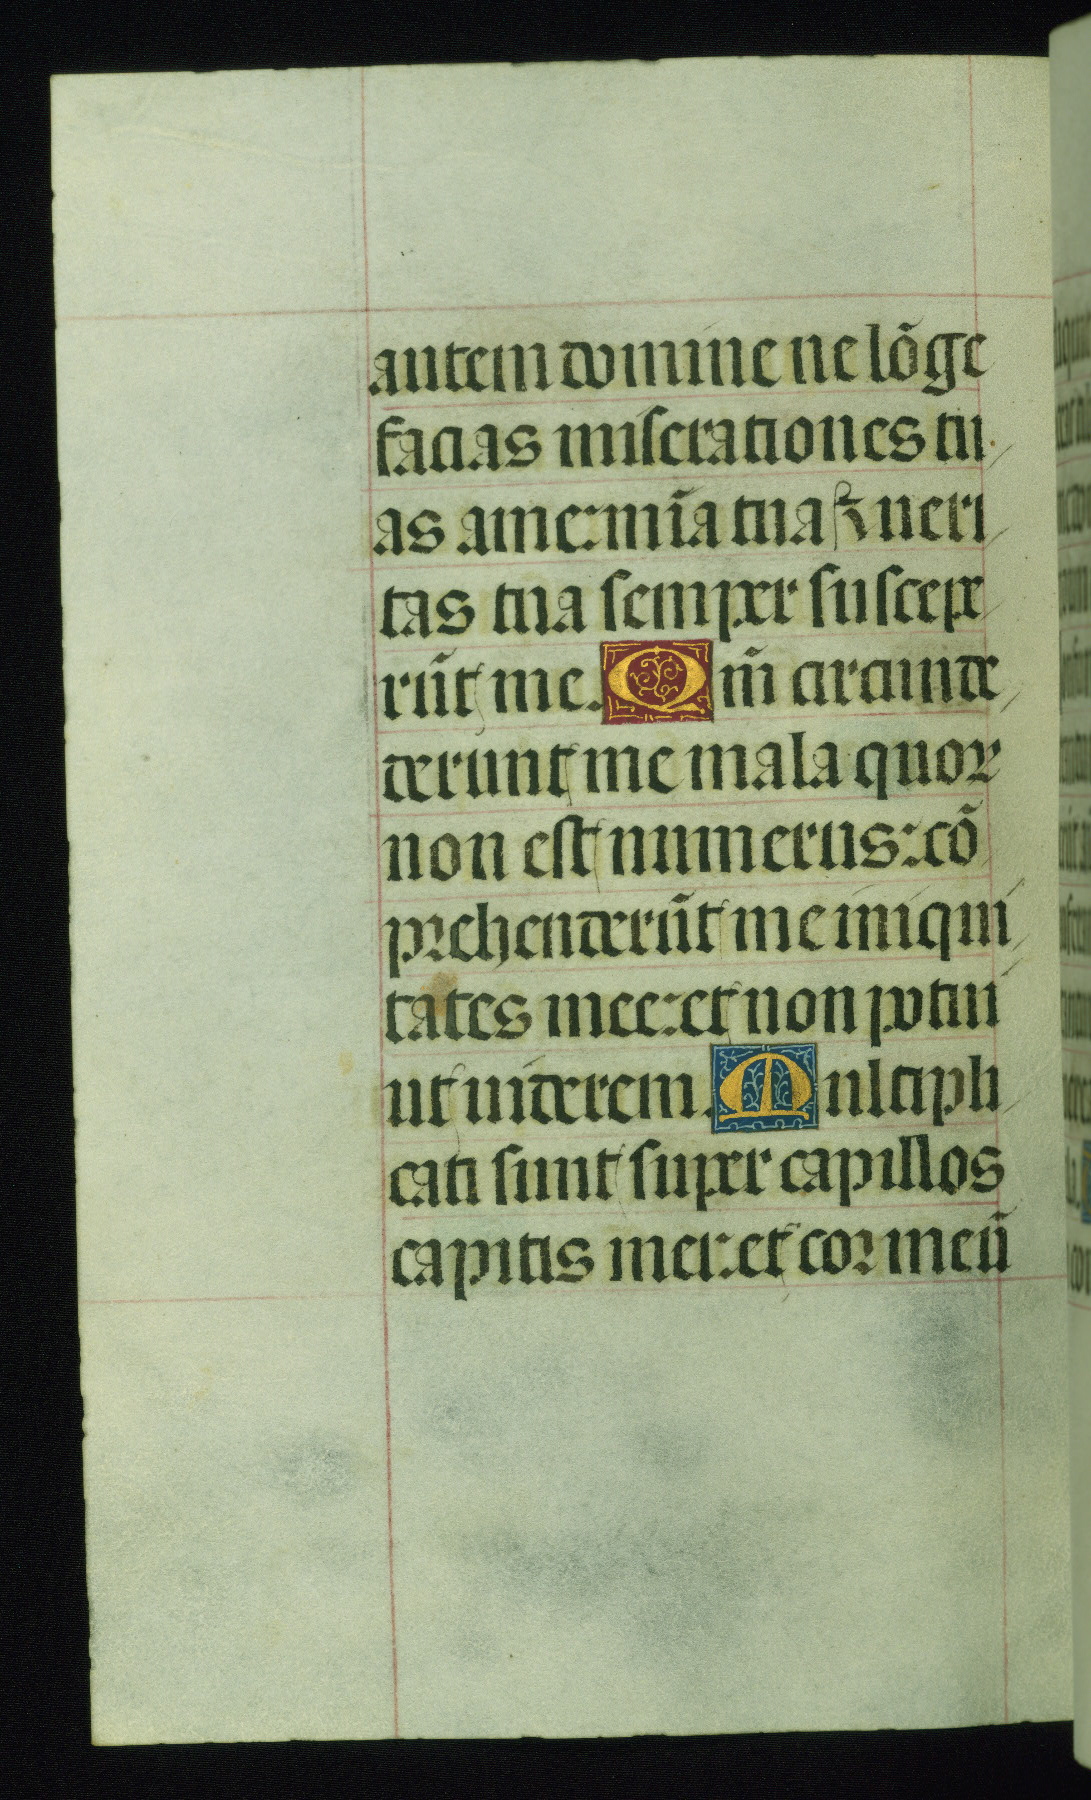 autem domine ne lõge
facias miserationes tu
as a me: mĩa tua ⁊ ueri
tas tua semper suscepe
rũt me. Qm̃ circunde
derunt me mala quor
non est numerus: cõ
prehenderũt me iniqui
tates mee: et non potui
ut uiderem. Multipli
cati sunt super capillos
capitis mei: et cor meũ